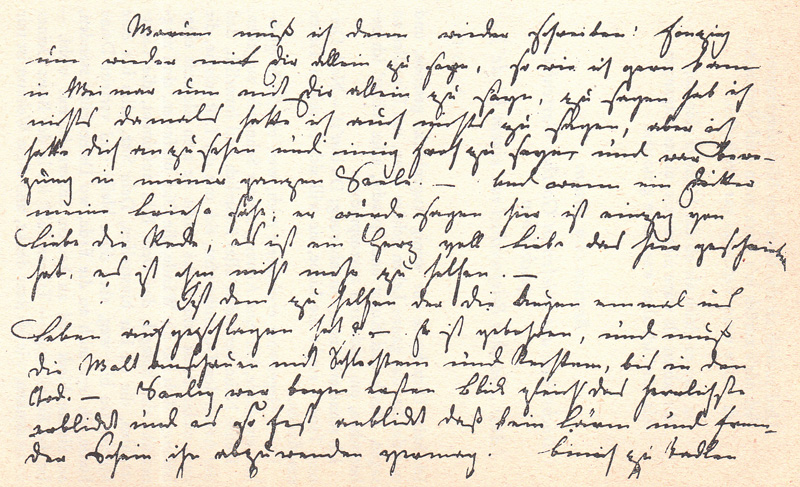 Warum muß ich denn wieder schreiben? Einzig
um wieder mit Dir allein zu seyn, so wie ich gern kam
in Weimar um mit Dir allein zu seyn, zu sagen hab ich
nichts damals hatte ich auch nichts zu sagen, aber ich
hatte dich anzusehen und innig froh zu seyn und war Bewe-
gung in meiner ganzen Seele. — Und wenn ein Dritter
meine Briefe sähe, er würde sagen hier ist einzig von
Liebe die Rede, es ist ein Herz voll Liebe das hier geschrieben
hat, es ist ihm nicht mehr zu helfen. —
Ist dem zu helfen der die Augen einmal ins
Leben aufgeschlagen hat? — Er ist gebohren, und muß
die Welt anschauen mit Schlechtem und Rechtem, bis in den
Tod. — Seelig wer beym ersten Blick gleich das herrlichste
erblickt und es so fest anblickt daß kein Lärm und frem-
der Schein ihn abzuwenden vermag. bin ich zu tadlen